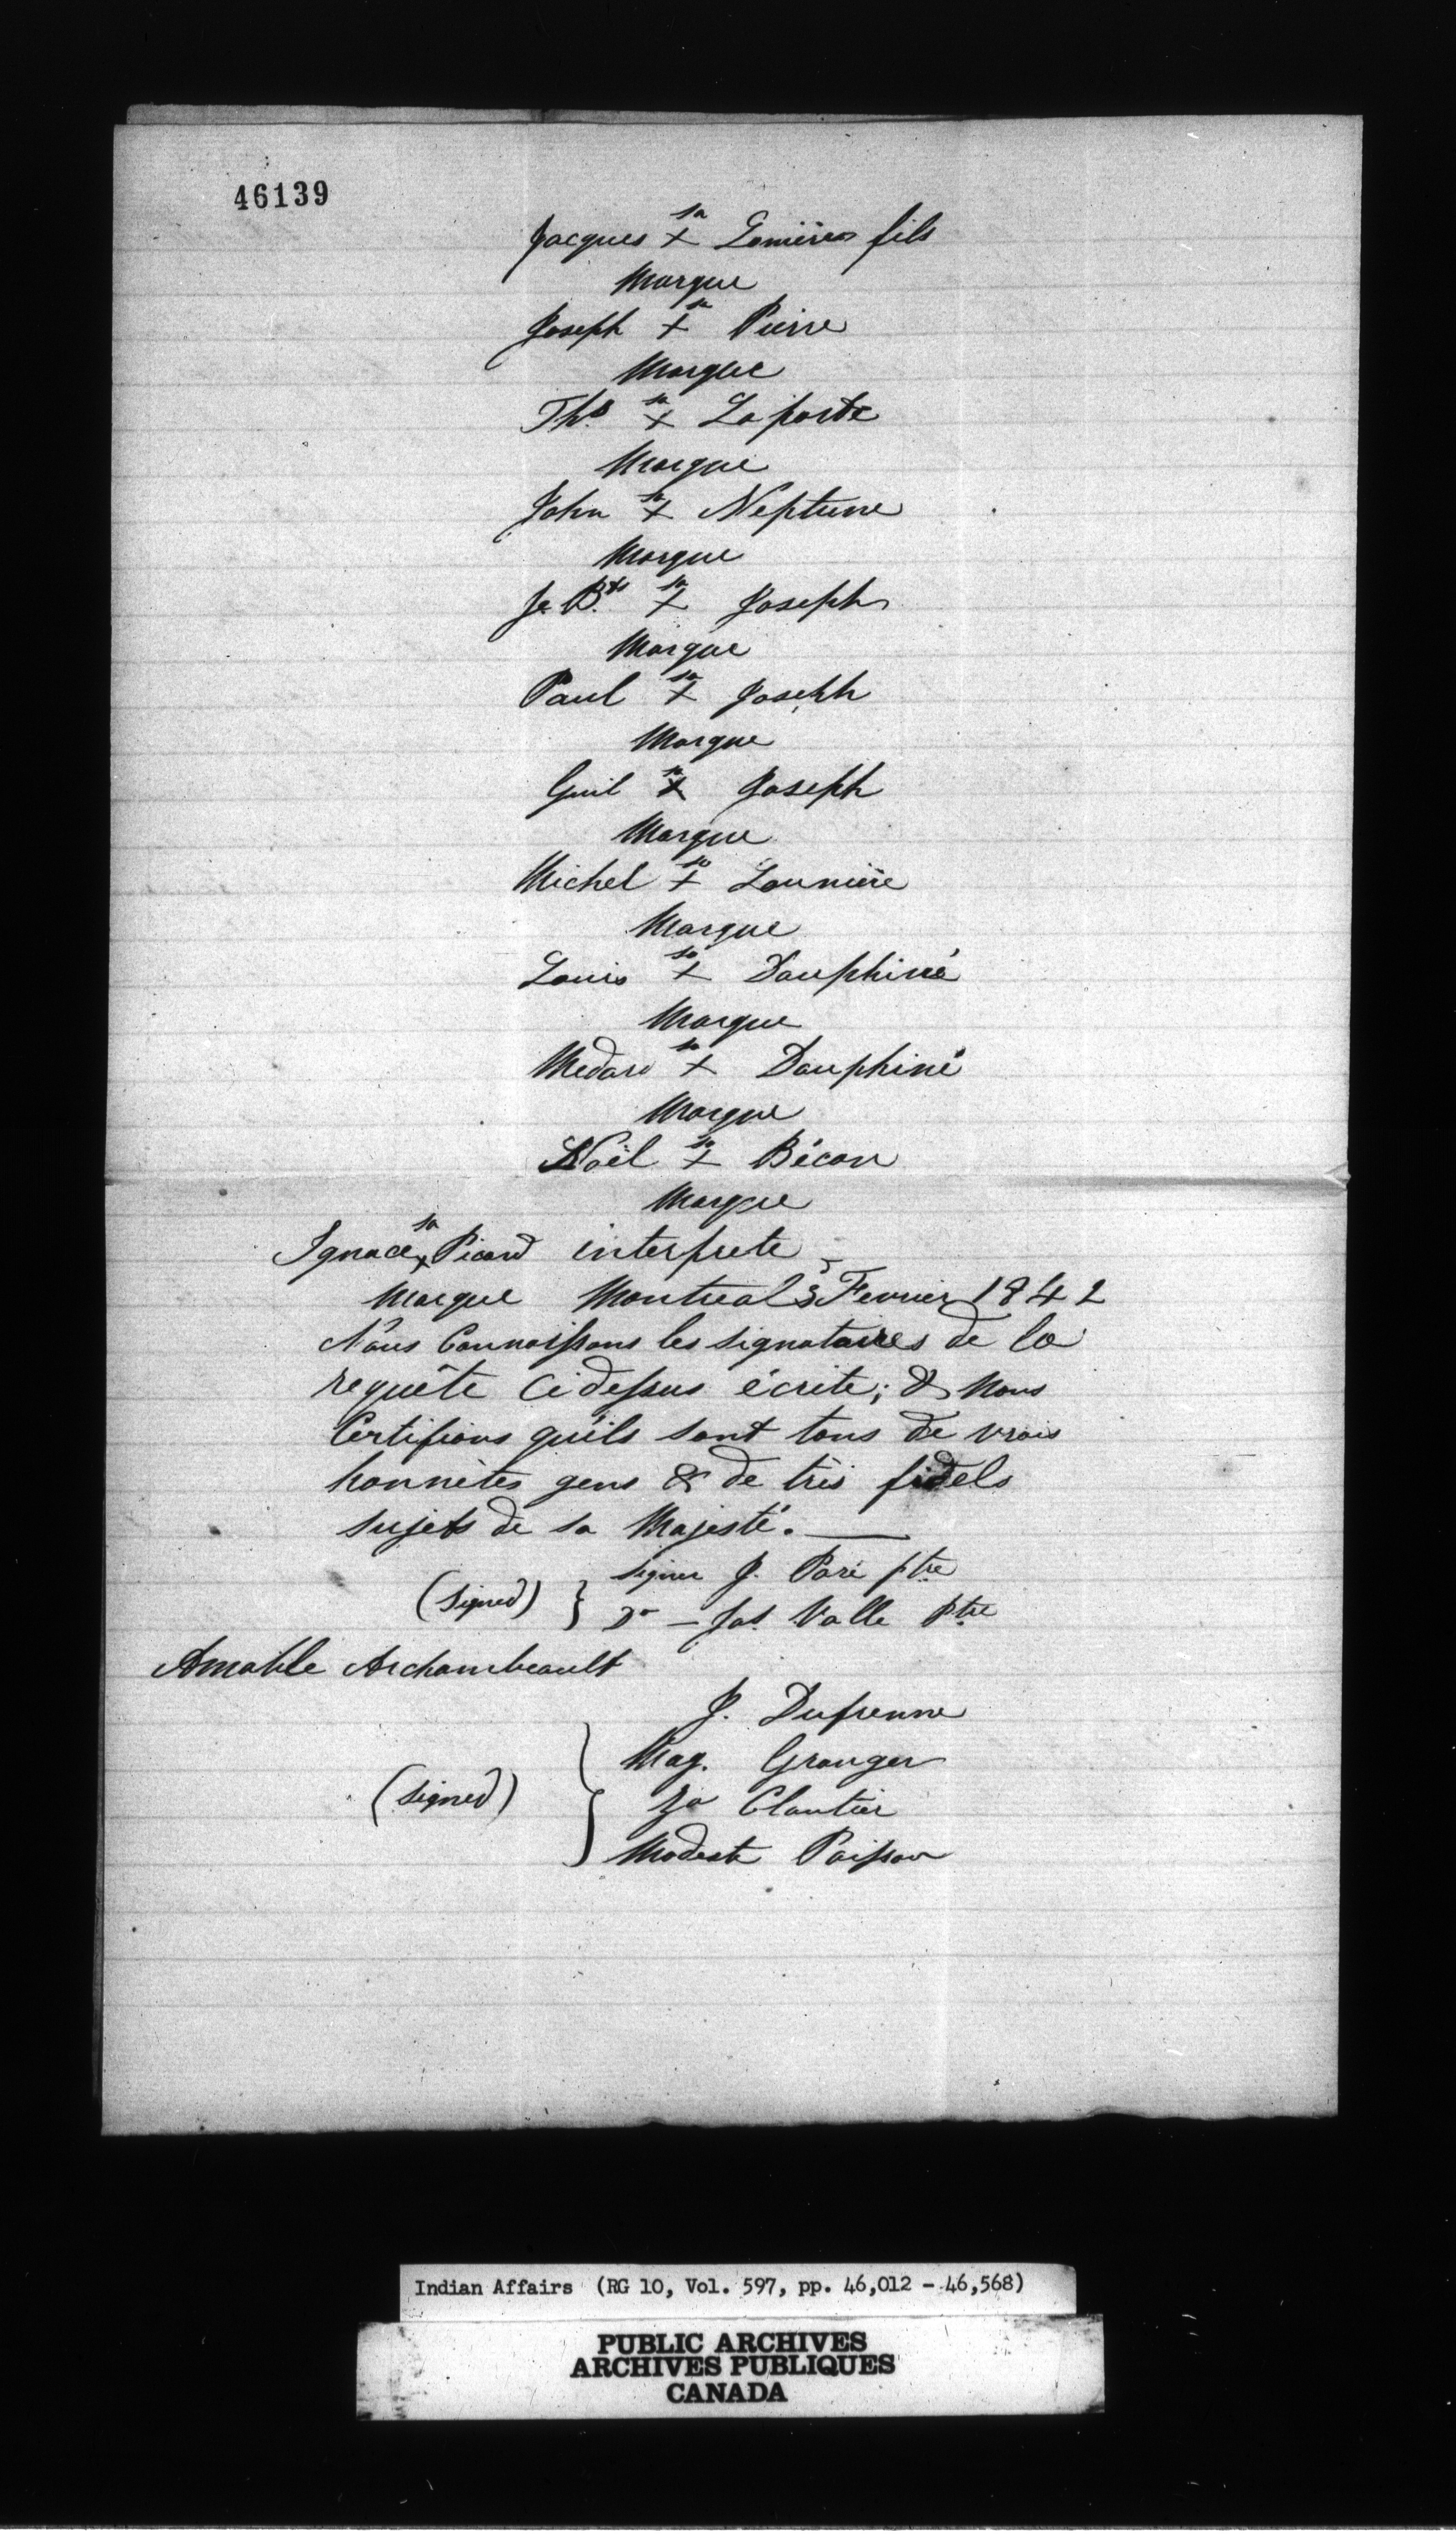 46139
sa
Jacques + Lomières fils
Marque
sa
Joseph + Pierre
Marque
sa
Ths. + Laporte
Marque
sa
John + Neptune
Marque
sa
Je. Bte. + Joseph
Marque
sa
Paul + Joseph
Marque
sa
Guil + Joseph
Marque
sa
Michel + Launière
Marque
sa
Louis + Dauphiné
Marque
sa
Medard + Dauphiné
Marque
sa
Noël + Bécan
Marque
sa
Ignace + Picard interprete
Marque Montreal 3 Fevrier 1842
Nous Connoissons les signataires de la
requête Ci dessus écrite; & Nous
Certifions qu'ils sont tous de vrais
honnêtes gens & de très fidels
sujets de sa Majesté. —
(signed) } signer J. Paré ptre
Do — Jos. Valle Ptre
Amable Archambeault
J. Dufrenne
Mag. Granger
(signed) } Clautier
Modeste Poisson
Indian Affairs (RG 10, Vol. 597, pp. 46,012 - 46,568)
PUBLIC ARCHIVES
ARCHIVES PUBLIQUES
CANADA